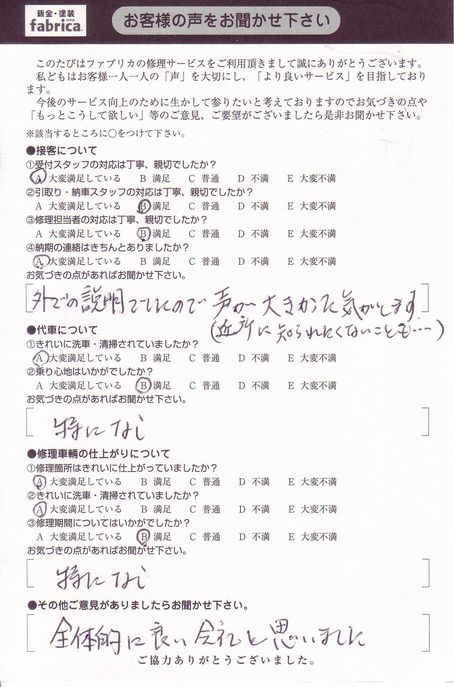 鈑金・塗装
fabrica.
お客様の声をお聞かせ下さい
このたびはファブリカの修理サービスをご利用頂きまして誠にありがとうございます。
私どもはお客様一人一人の「声」を大切にし、「より良いサービス」を目指しております。
今後のサービス向上のために生かして参りたいと考えておりますのでお気づきの点や
「もっとこうして欲しい」等のご意見、ご要望がございましたら是非お聞かせ下さい。
※該当するところに○をつけて下さい。
●接客について
①受付スタッフの対応は丁寧、親切でしたか?
A 大変満足している B 満足 C 普通 D 不満 E 大変不満
②引取り・納車スタッフの対応は丁寧、親切でしたか?
A 大変満足している B 満足 C 普通 D 不満 E 大変不満
③修理担当者の対応は丁寧、親切でしたか?
A 大変満足している B 満足 C 普通 D 不満 E 大変不満
④納期の連絡はきちんとありましたか?
A 大変満足している B 満足 C 普通 D 不満 E 大変不満
お気づきの点があればお聞かせ下さい。
外での説明でしたので 声が大きかった気がします
(近所に知られたくないことも…)
●代車について
①きれいに洗車・清掃されていましたか?
A 大変満足している B 満足 C 普通 D 不満 E 大変不満
②乗り心地はいかがでしたか?
A 大変満足している B 満足 C 普通 D 不満 E 大変不満
お気づきの点があればお聞かせ下さい。
特になし
●修理車輌の仕上がりについて
①修理箇所はきれいに仕上がっていましたか?
A 大変満足している B 満足 C 普通 D 不満 E 大変不満
②きれいに洗車・清掃されていましたか?
A 大変満足している B 満足 C 普通 D 不満 E 大変不満
③修理期間についてはいかがでしたか?
A 大変満足している B 満足 C 普通 D 不満 E 大変不満
お気づきの点があればお聞かせ下さい。
特になし
●その他ご意見がありましたらお聞かせ下さい。
全体的に良い会社と思いました
ご協力ありがとうございました。